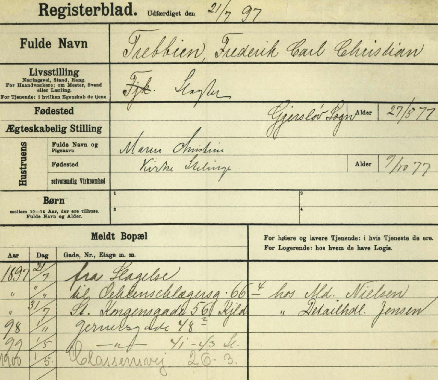 Registerblad. Udfærdiget den 21/7 97
Fulde Navn Trebbien, Frederik Carl Christian
Livsstilling
Næringsvej, Stand, Rang.
For Haandværkere: om Mester, Svend
eller Lærling.
For Tjenende: i hvilken Egenskab de tjene
Slagter
Fødested Gjerslev Sogn Alder 27/5 77
Ægteskabelig Stilling
Hustruens
Fulde Navn og
Pigenavn
Maren
Fødested Kirke Alder 9/10 77
selvstændig Virksomhed
Børn
mellem 10-14 Aar, der ere tilhuse.
Fulde Navn og Alder.
1 3
2 4
Meldt Bopæl
For højere og lavere Tjenende: i hvis Tjeneste de ere.
For Logerende: hos hvem de have Logis.
Aar Dag Gade, Nr., Etage m. m.
1897 21/7 fra Slagelse
" " til 66 4 hos Md. Nielsen
" 31/7 St. Kongensgade 56 Kjld " Detailhdl. Jensen
98 Gernersgade 48
99 1/5 41-43 St.
1900 1/5 Classensvej 26. 3.